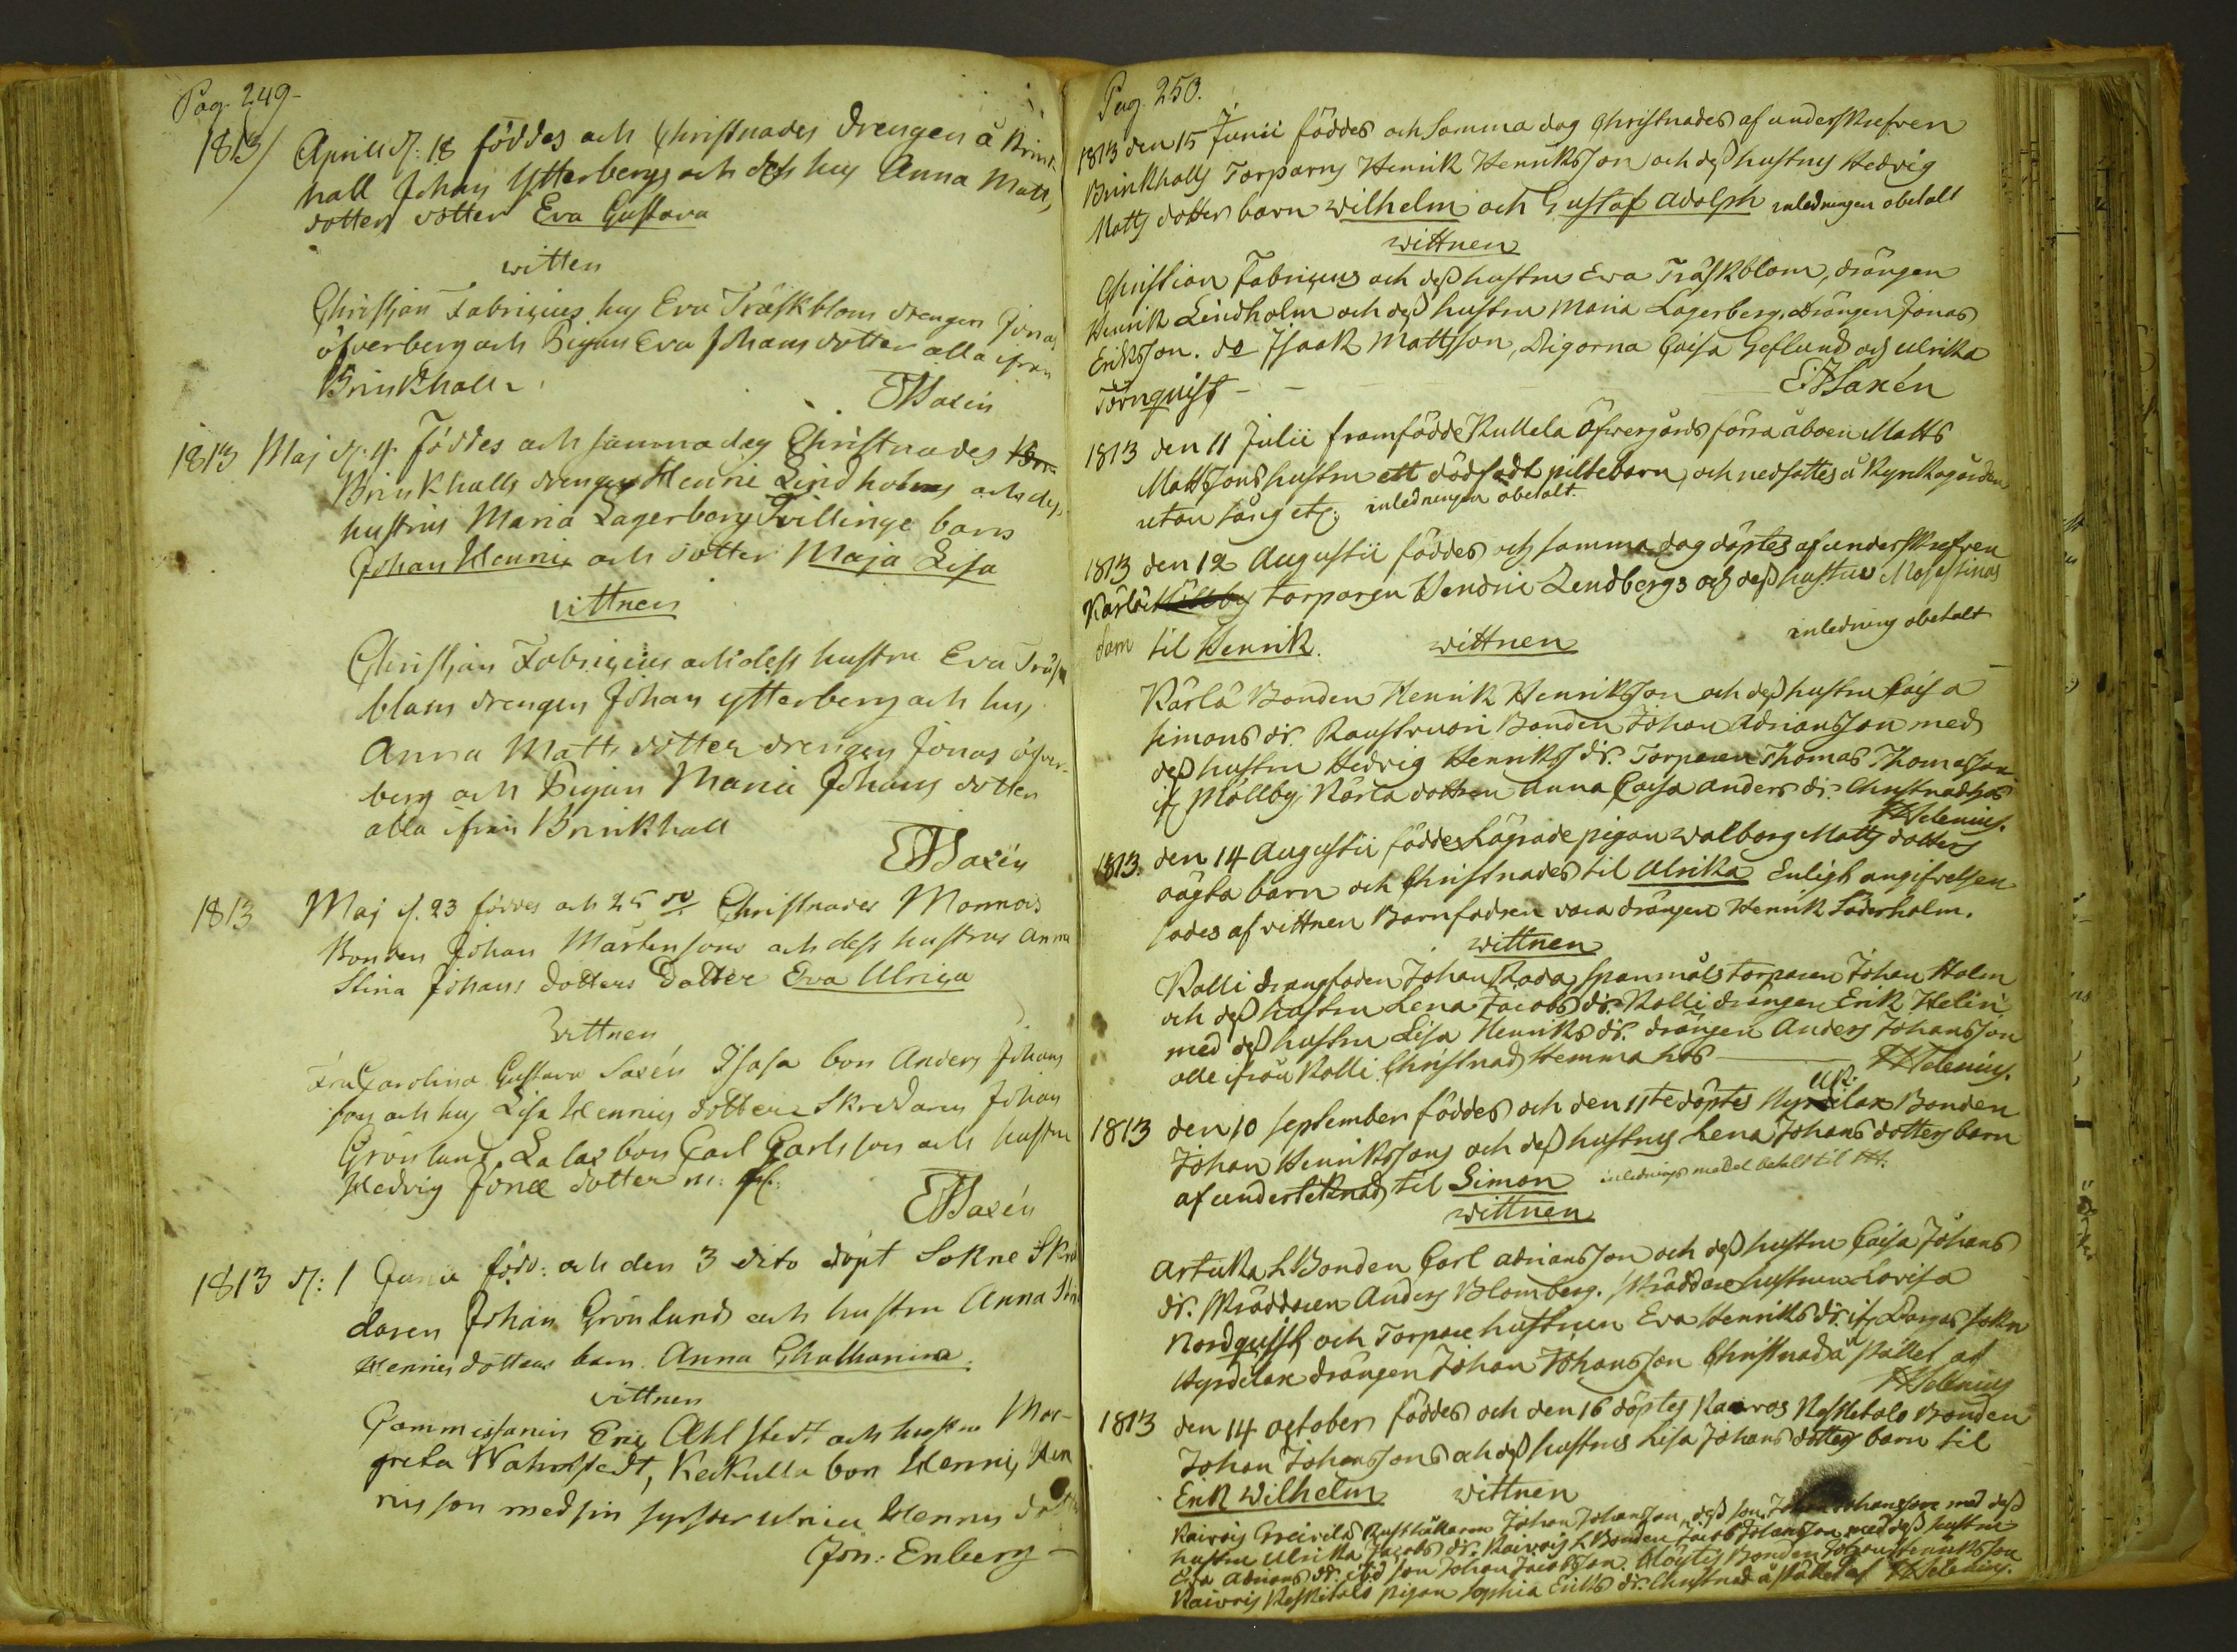 Pag. 249-
1813/ Aprill d: 18 föddes och Christnades drengen å Brink-
hall Johan Ytterbergs och dess hus Anna Matts
dotters dotter Eva Gustava
witten
Christjan Fabricius hus Eva Träskblom drengen Jonas
öfverberg och Pigan Eva Johans dotter alla ifrån
Brinkhall
E Saxén
1813 Maj d: 4 Föddes och samma dag Christnades
Brinkhalls drengens Henric Lindholms och dess
hustrus Maria Lagerberg Tvillinge barn
Johan Henric och dotter Maja Lisa
vittnen
Christjan Fabricius och dess hustru Eva Träsk
blom drengen Johan ytterberg och hus
Anna Matts dotter drengen Jonas öfver-
berg och Pigan Maria Johans dotter
alla ifrån Brinkhall
E Saxén
1813 Maj d. 23 föddes och 25 Christnades Monnois
Bonden Johan Mårtensons och dess hustrus Anna
Stina Johans dotters Dotter Eva Ulrica
Vittnen
Fru Carolina Gustava Saxén bon Anders Johans
son och hus Lisa Henrics dotter Skreddaren Johan
Grönlund bon Carl Carlsson och hustru
Hedvig Jonæ dotter m: fl:
E Saxén
1813 d: 1 Junii född: och den 3 dito döpt Sokne Skred
daren Johan Grönlund och hustru Anna Stina
Henrics dotters barn Anna Chatharina
vittnen
Commissarien Eric Ahlstedt och hustru Mar-
greta Wahrstedt, Keikulla bon Henric Hen
ricsson med sin syster Ulrica Henrics dotter
Jon: Enberg -
Pag. 250.
1813 den 15 Junii föddes och samma dag Christnades af underskrefven
Brinkhalls Torparns Henrik Henriksson och dess hustrus Hedvig
Matts dotters barn Wilhelm och Gustaf Adolph inledningen obetalt
wittnen
Christian Fabricius och dess hustru Eva Träskblom, drängen
Henrik Lindholm och dess hustru Maria Lagerberg, drängen Jonas
Eriksson. do Isaak Mattsson, Pigorna Caisa Geflund och Ulrika
Törnquist - - E Saxén
1813 den 11 Julii framfödde Kullela Öfvergårds förra åboen Matts
Mattsons hustru ett dödfödt piltebarn, och nedsattes å Kyrkogården
utan sång etc: inledningen obetalt.
1813 den 12 Augustii föddes och samma dag döptes af underskrefven
Kärlä torparen Hendric Lendbergs och dess hustrus
til Henrik. wittnen inledning obetalt
Kärlä Bonden Henrik Henriksson och dess hustru Caisa
Simons dr. Bonden Johan Adriansson med
dess hustru Hedvig Henriks dr. Torparen Thomas Thomasson
if Mällby, Kärla dottren Anna Caisa Anders dr. Christnad
Helenius.
1813. den 14 Augustii föddes Lägrade pigan Walborg Matts dotters
oägta barn och Christnades til Ulrika Enligt angifvelsen
sades af vittnen Barnfadren vara drängen Henrik Söderholm.
wittnen
Kalli drangfaden Johan Spanmåls torparen Johan Holm
och dess hustru Lena Jacobs dr. Kalli drängen Erik Helin
med dess hustru Lisa Henriks dr. drängen Anders Johansson
alle ifrån Kalli. Christnad Hemma hos Helenius.
1813 den 10 September föddes och den 11te döptes Bonden
Johan Henrikssons och dess hustrus Lena Johans dotters barn
af underteknad til Simon inlednings medel betalt til
wittnen
Artuka Bonden Carl Adriansson och dess hustru Caisa Johans
dr. Skräddaren Anders Blomberg. Skräddare hustrun Lovisa
Nordquist och Torpare hustrun Eva Henriks dr. if sokn
drängen Johan Johansson Christnad å stället af
Helenius
1813 den 14 October föddes och den 16 döptes Bonden
Johan Johanssons och dess hustrus Lisa Johans dotters barn til
Erik Wilhelm wittnen
Rusthållaren Johan Johansson, dess son Johan Johansson med dess
hustru Ulrika Jacobs dr. Bonden Jacob Johansson med dess hustru
Eva Adrians dr. son Johan Jacobsson. Bonden Johan Henriksson
pigan Sophia Eriks dr. Christnad å stället af Helenius.